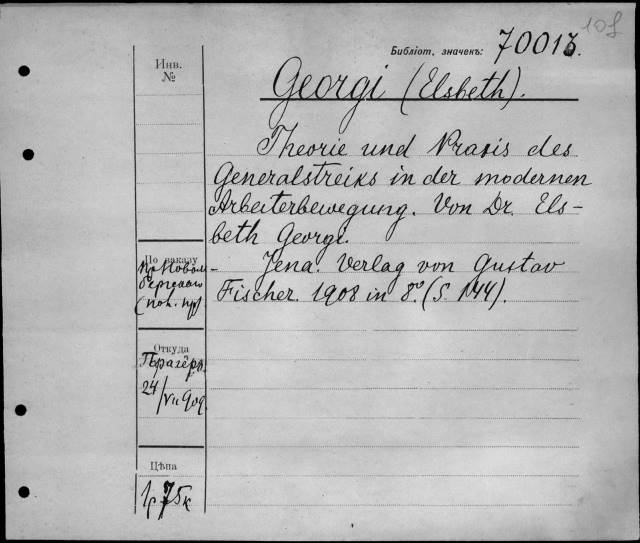 Библіот. значекъ: 70013.
Инв.
№
Georgi (Elsbeth).
Theorie und Praxis des
Generalstreiks in der modernen
Arbeiterbewegung. Von Dr. Els-
beth Georgi.
Jena. Verlag von Gustav
Fischer. 1908 in 8º. (S. 144).
По заказу
Откуда
24/VII 909.
Цѣна
1р 75к